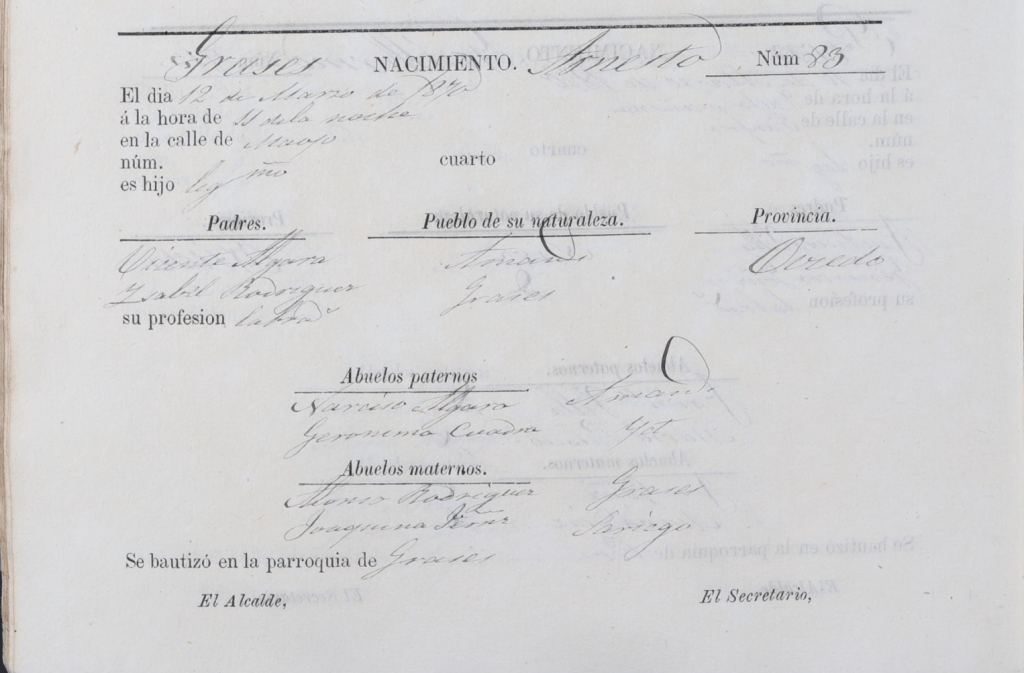 Grases NACIMIENTO. Ernesto Núm 83
El dia 12 de Marzo de 1870
á la hora de 11 de la noche
en la calle de
núm. cuarto
es hijo leg mo
Padres. Pueblo de su naturaleza. Provincia.
Vicente Algara Amandi Oviedo
Ysabel Rodriguez Grases
su profesion labrad
Abuelos paternos
Narciso Algara Amandi
Geronima Cuadra Yd
Abuelos maternos.
Alonso Rodriguez Grases
Joaquina Fernz Sariego
Se bautizó en la parroquia de Grases
El Alcalde, El Secretario,